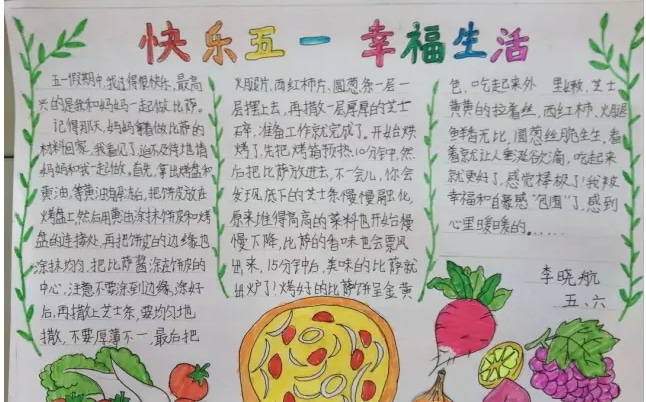 快乐五一 幸福生活
五一假期中,我过得很快乐,最高
兴的是我和妈妈一起做比萨。
记得那天,妈妈拿着做比萨的
材料回家,我看见了迫不及待地请
妈妈和我一起做,首先,拿出烤盘和
黄油,等黄油解冻后,把饼皮放在
烤盘上,然后用黄油涂抹饼皮和烤
盘的连接处,再把饼皮的边缘也
涂抹均匀,把比萨酱涂在饼皮的
中心,注意不要涂到边缘,涂好
后,再撒上芝士条,要均匀地
撒,不要厚薄不一,最后把
火腿片,西红柿片、圆葱条一层一
层摆上去,再撒一层厚厚的芝士
碎,准备工作就完成了,开始烘
烤了,先把烤箱预热10分钟,然
后把比萨放进去,不一会儿,你会
发现底下的芝士条慢慢融化,
原来堆得高高的菜料也开始慢
慢下降,比萨的香味也会飘
出来,15分钟后,美味的比萨就
出炉了!烤好的比萨饼呈金黄
色,吃起来外 里嫩,芝士
黄黄的拉着丝,西红柿、火腿
鲜香无比,圆葱丝脆生生,看
着就让人垂涎欲滴,吃起来
就更好了,感觉棒极了!我被
幸福和自豪感"包围"了,感到
心里暖暖的......
李晓航
五、六